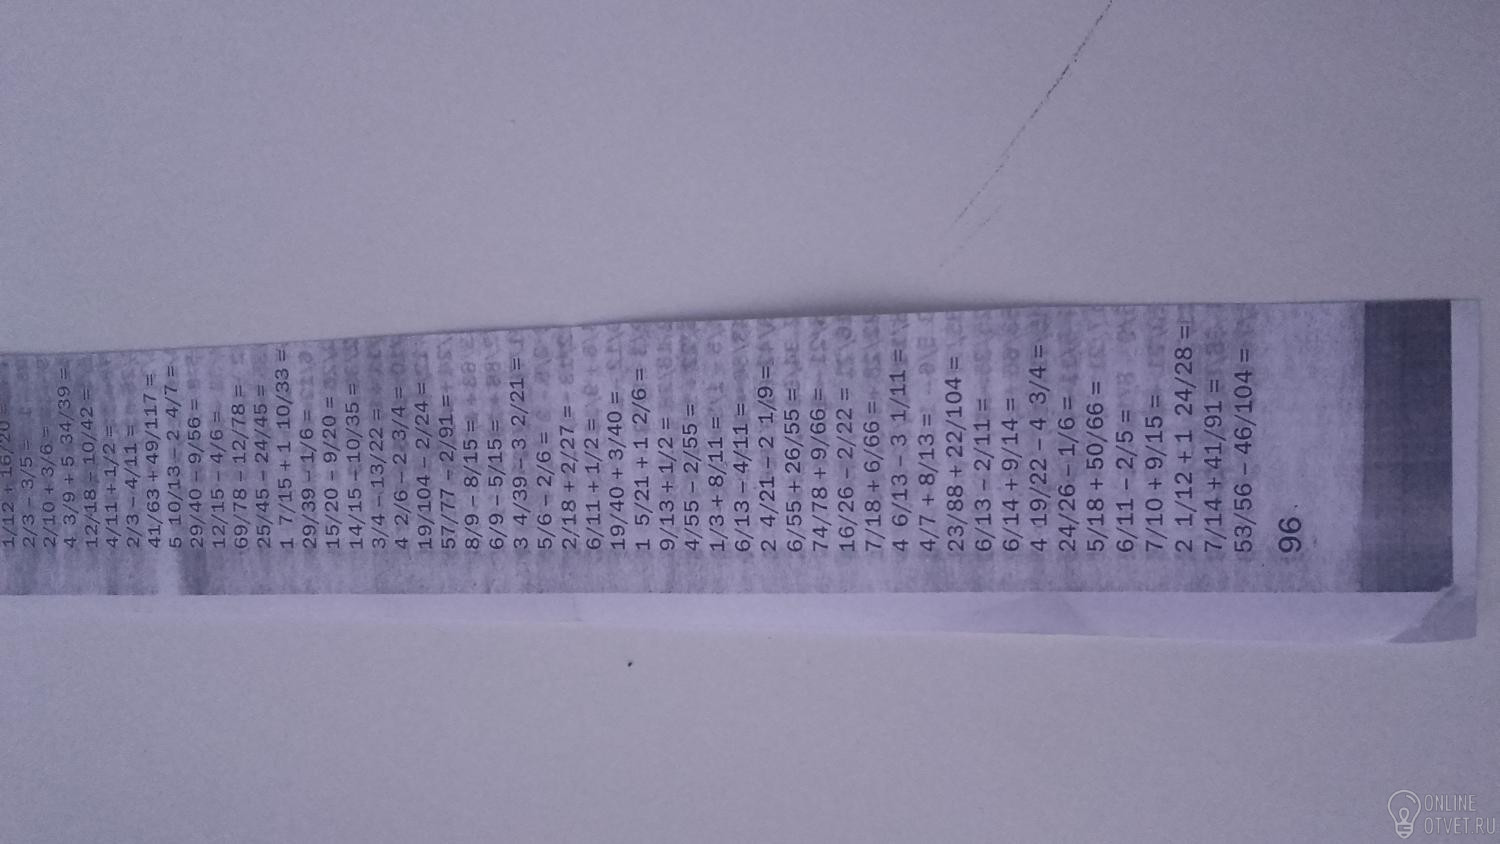 1/12 + 16/20 =
2/3 − 3/5 =
2/10 + 3/6 =
4 3/9 + 5 34/39 =
12/18 − 10/42 =
4/11 + 1/2 =
2/3 − 4/11 =
41/63 + 49/117 =
5 10/13 − 2 4/7 =
29/40 − 9/56 =
12/15 − 4/6 =
69/78 − 12/78 =
25/45 − 24/45 =
1 7/15 + 1 10/33 =
29/39 − 1/6 =
15/20 − 9/20 =
14/15 − 10/35 =
3/4 − 13/22 =
4 2/6 − 2 3/4 =
19/104 − 2/24 =
57/77 − 2/91 =
8/9 − 8/15 =
6/9 − 5/15 =
3 4/39 − 3 2/21 =
5/6 − 2/6 =
2/18 + 2/27 =
6/11 + 1/2 =
19/40 + 3/40 =
1 5/21 + 1 2/6 =
9/13 + 1/2 =
4/55 − 2/55 =
1/3 + 8/11 =
6/13 − 4/11 =
2 4/21 − 2 1/9 =
6/55 + 26/55 =
74/78 + 9/66 =
16/26 − 2/22 =
7/18 + 6/66 =
4 6/13 − 3 1/11 =
4/7 + 8/13 =
23/88 + 22/104 =
6/13 − 2/11 =
6/14 + 9/14 =
4 19/22 − 4 3/4 =
24/26 − 1/6 =
5/18 + 50/66 =
6/11 − 2/5 =
7/10 + 9/15 =
2 1/12 + 1 24/28 =
7/14 + 41/91 =
53/56 − 46/104 =
96
ONLINE
OTVET.RU